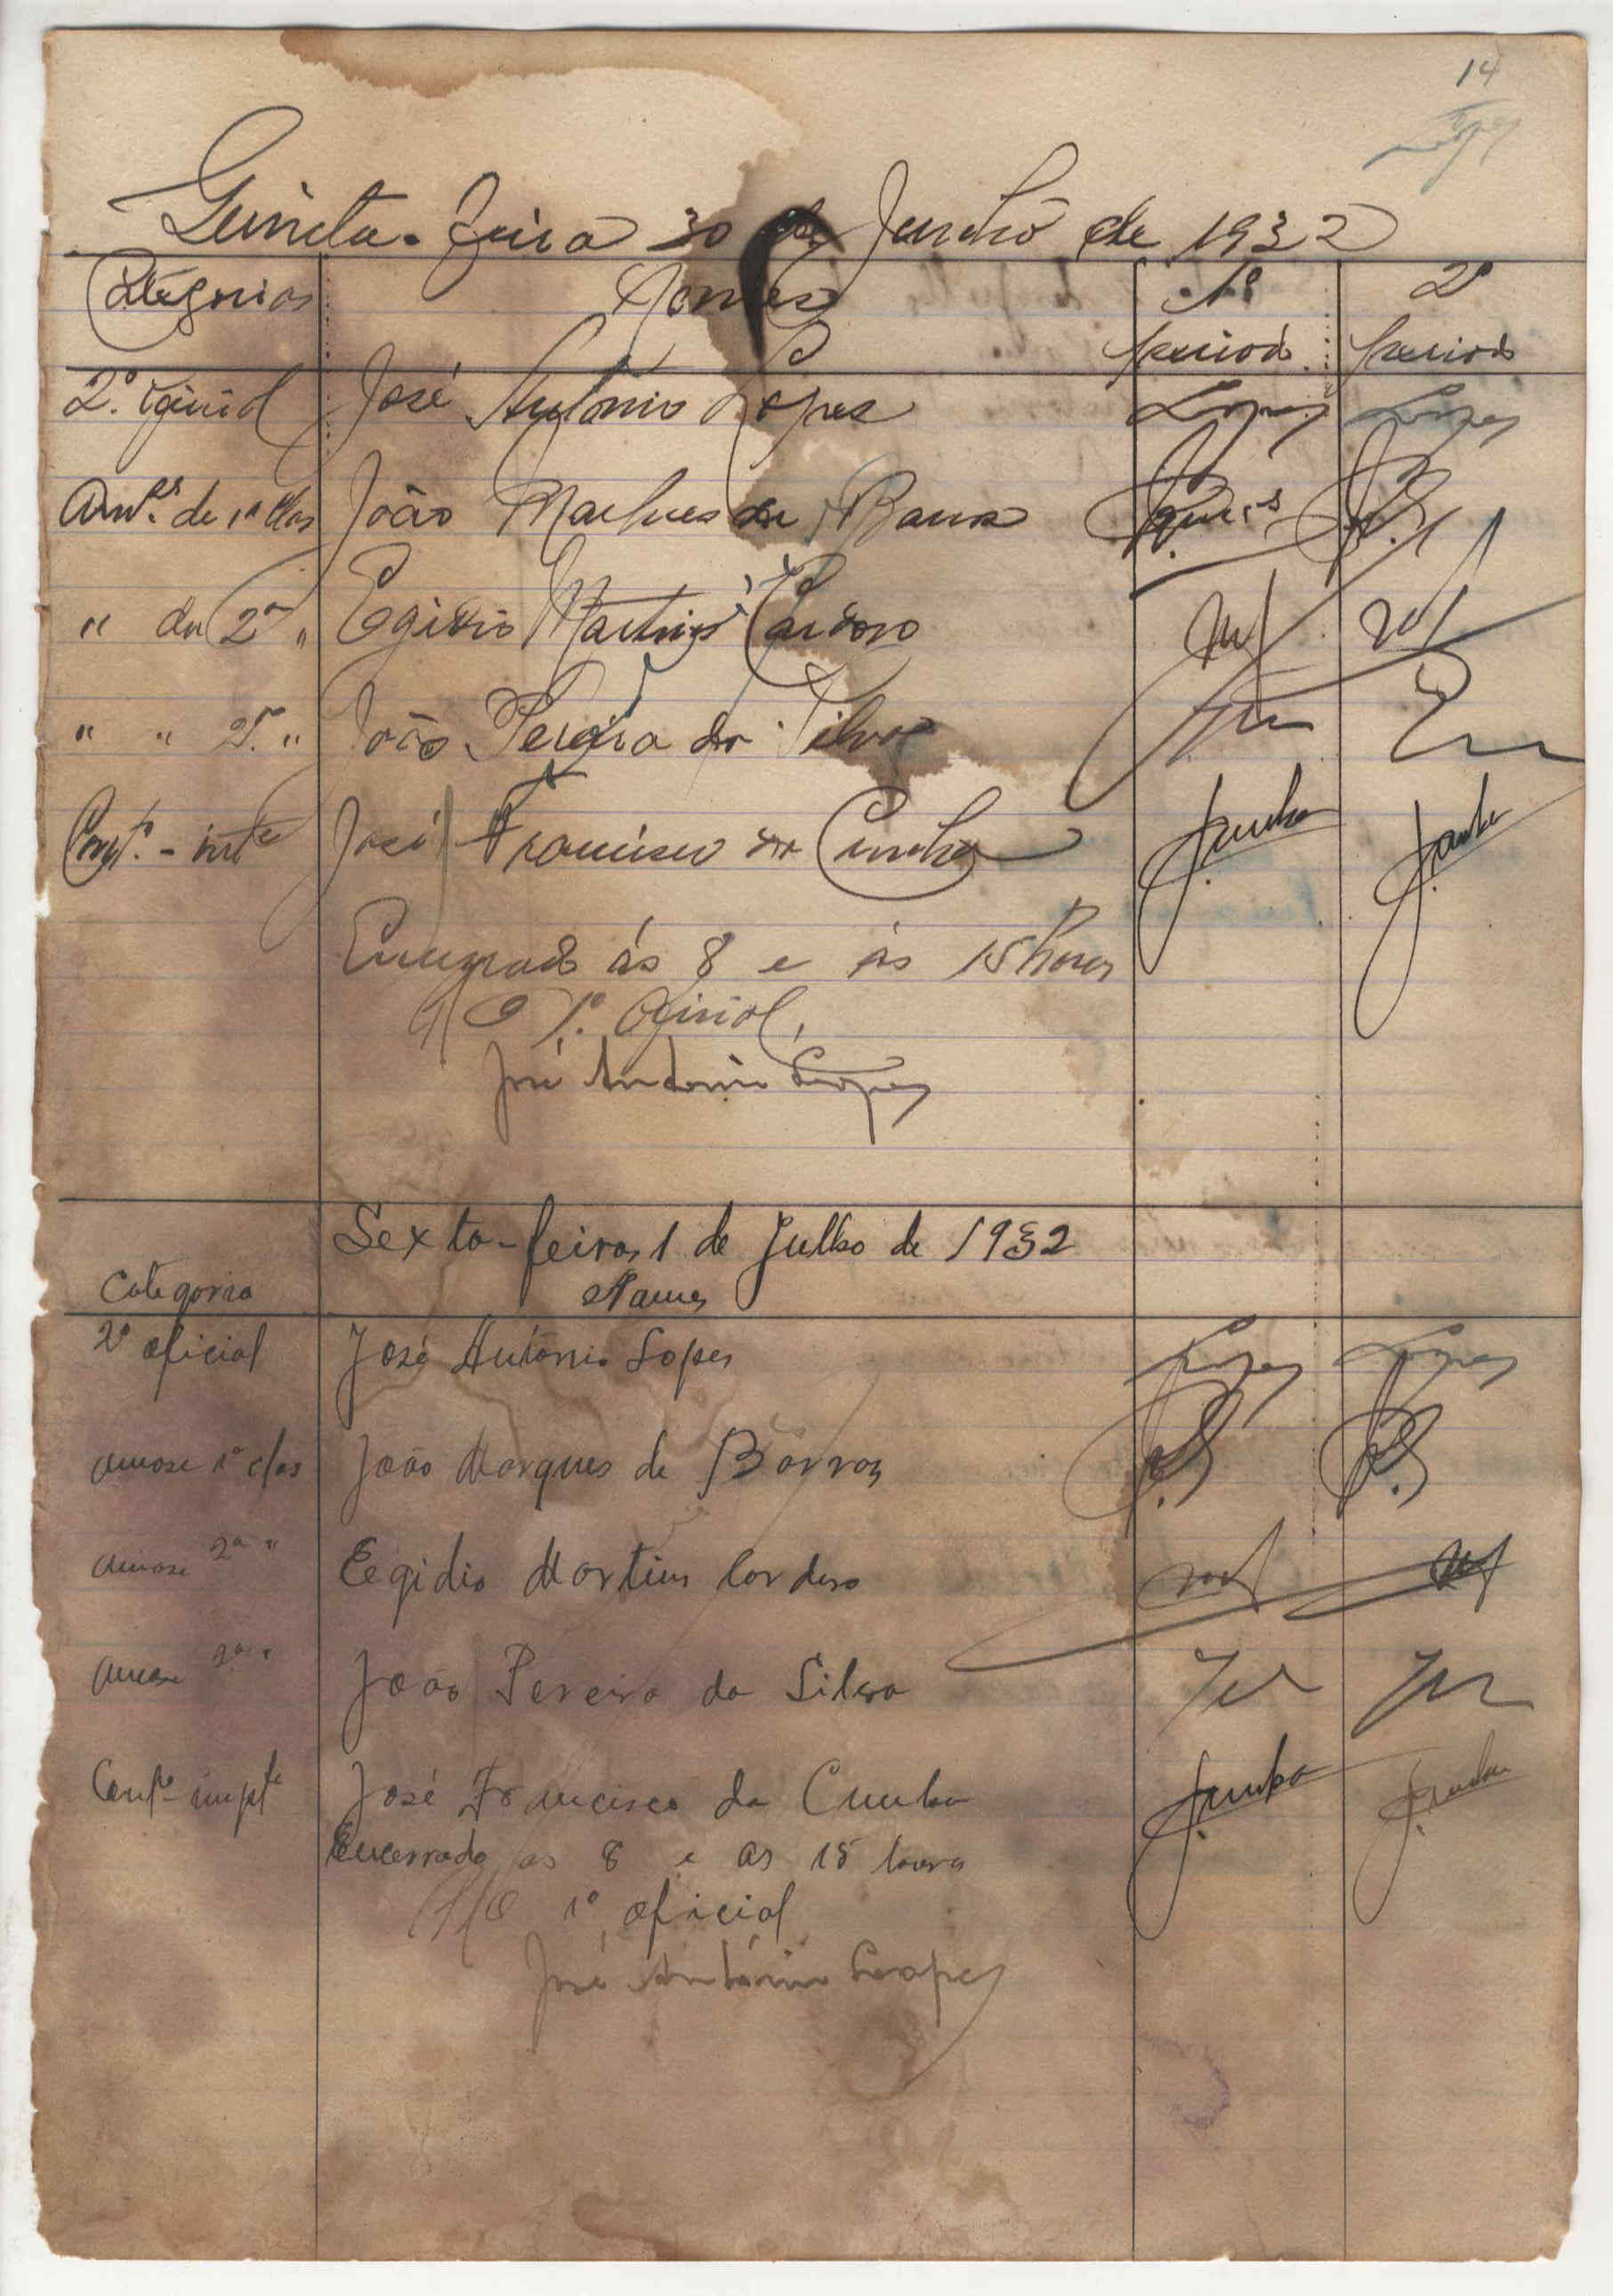 14
Quinta-feira 30 de Junho de 1932
Categorias Nomes 1º 2º
período período
2º oficial José António Lopes Lopes Lopes
de 1ª clas João Marques de Barros
" de 2ª " Egidio Martins Cardoso
" " 2ª " João Pereira da Silva
José Francisco da Cunha JCunha JCunha
Encerrado ás 8 e ás 15 horas
O 1º Oficial,
José António Lopes
Sexta-feira, 1 de Julho de 1932
Categoria Nomes
2º oficial José António Lopes Lopes Lopes
1ª clas João Marques de Barros
2ª " Egidio Martins Cardoso
2ª " João Pereira da Silva
José Francisco da Cunha JCunha JCunha
Encerrado as 8 e as 15 horas
O 1º oficial
José António Lopes